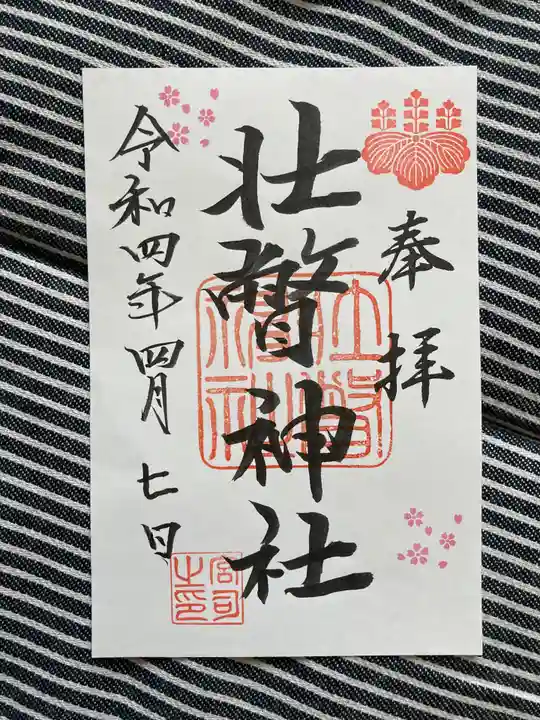 奉拝
壮瞥神社
令和四年四月七日
壮瞥神社
宮司之印